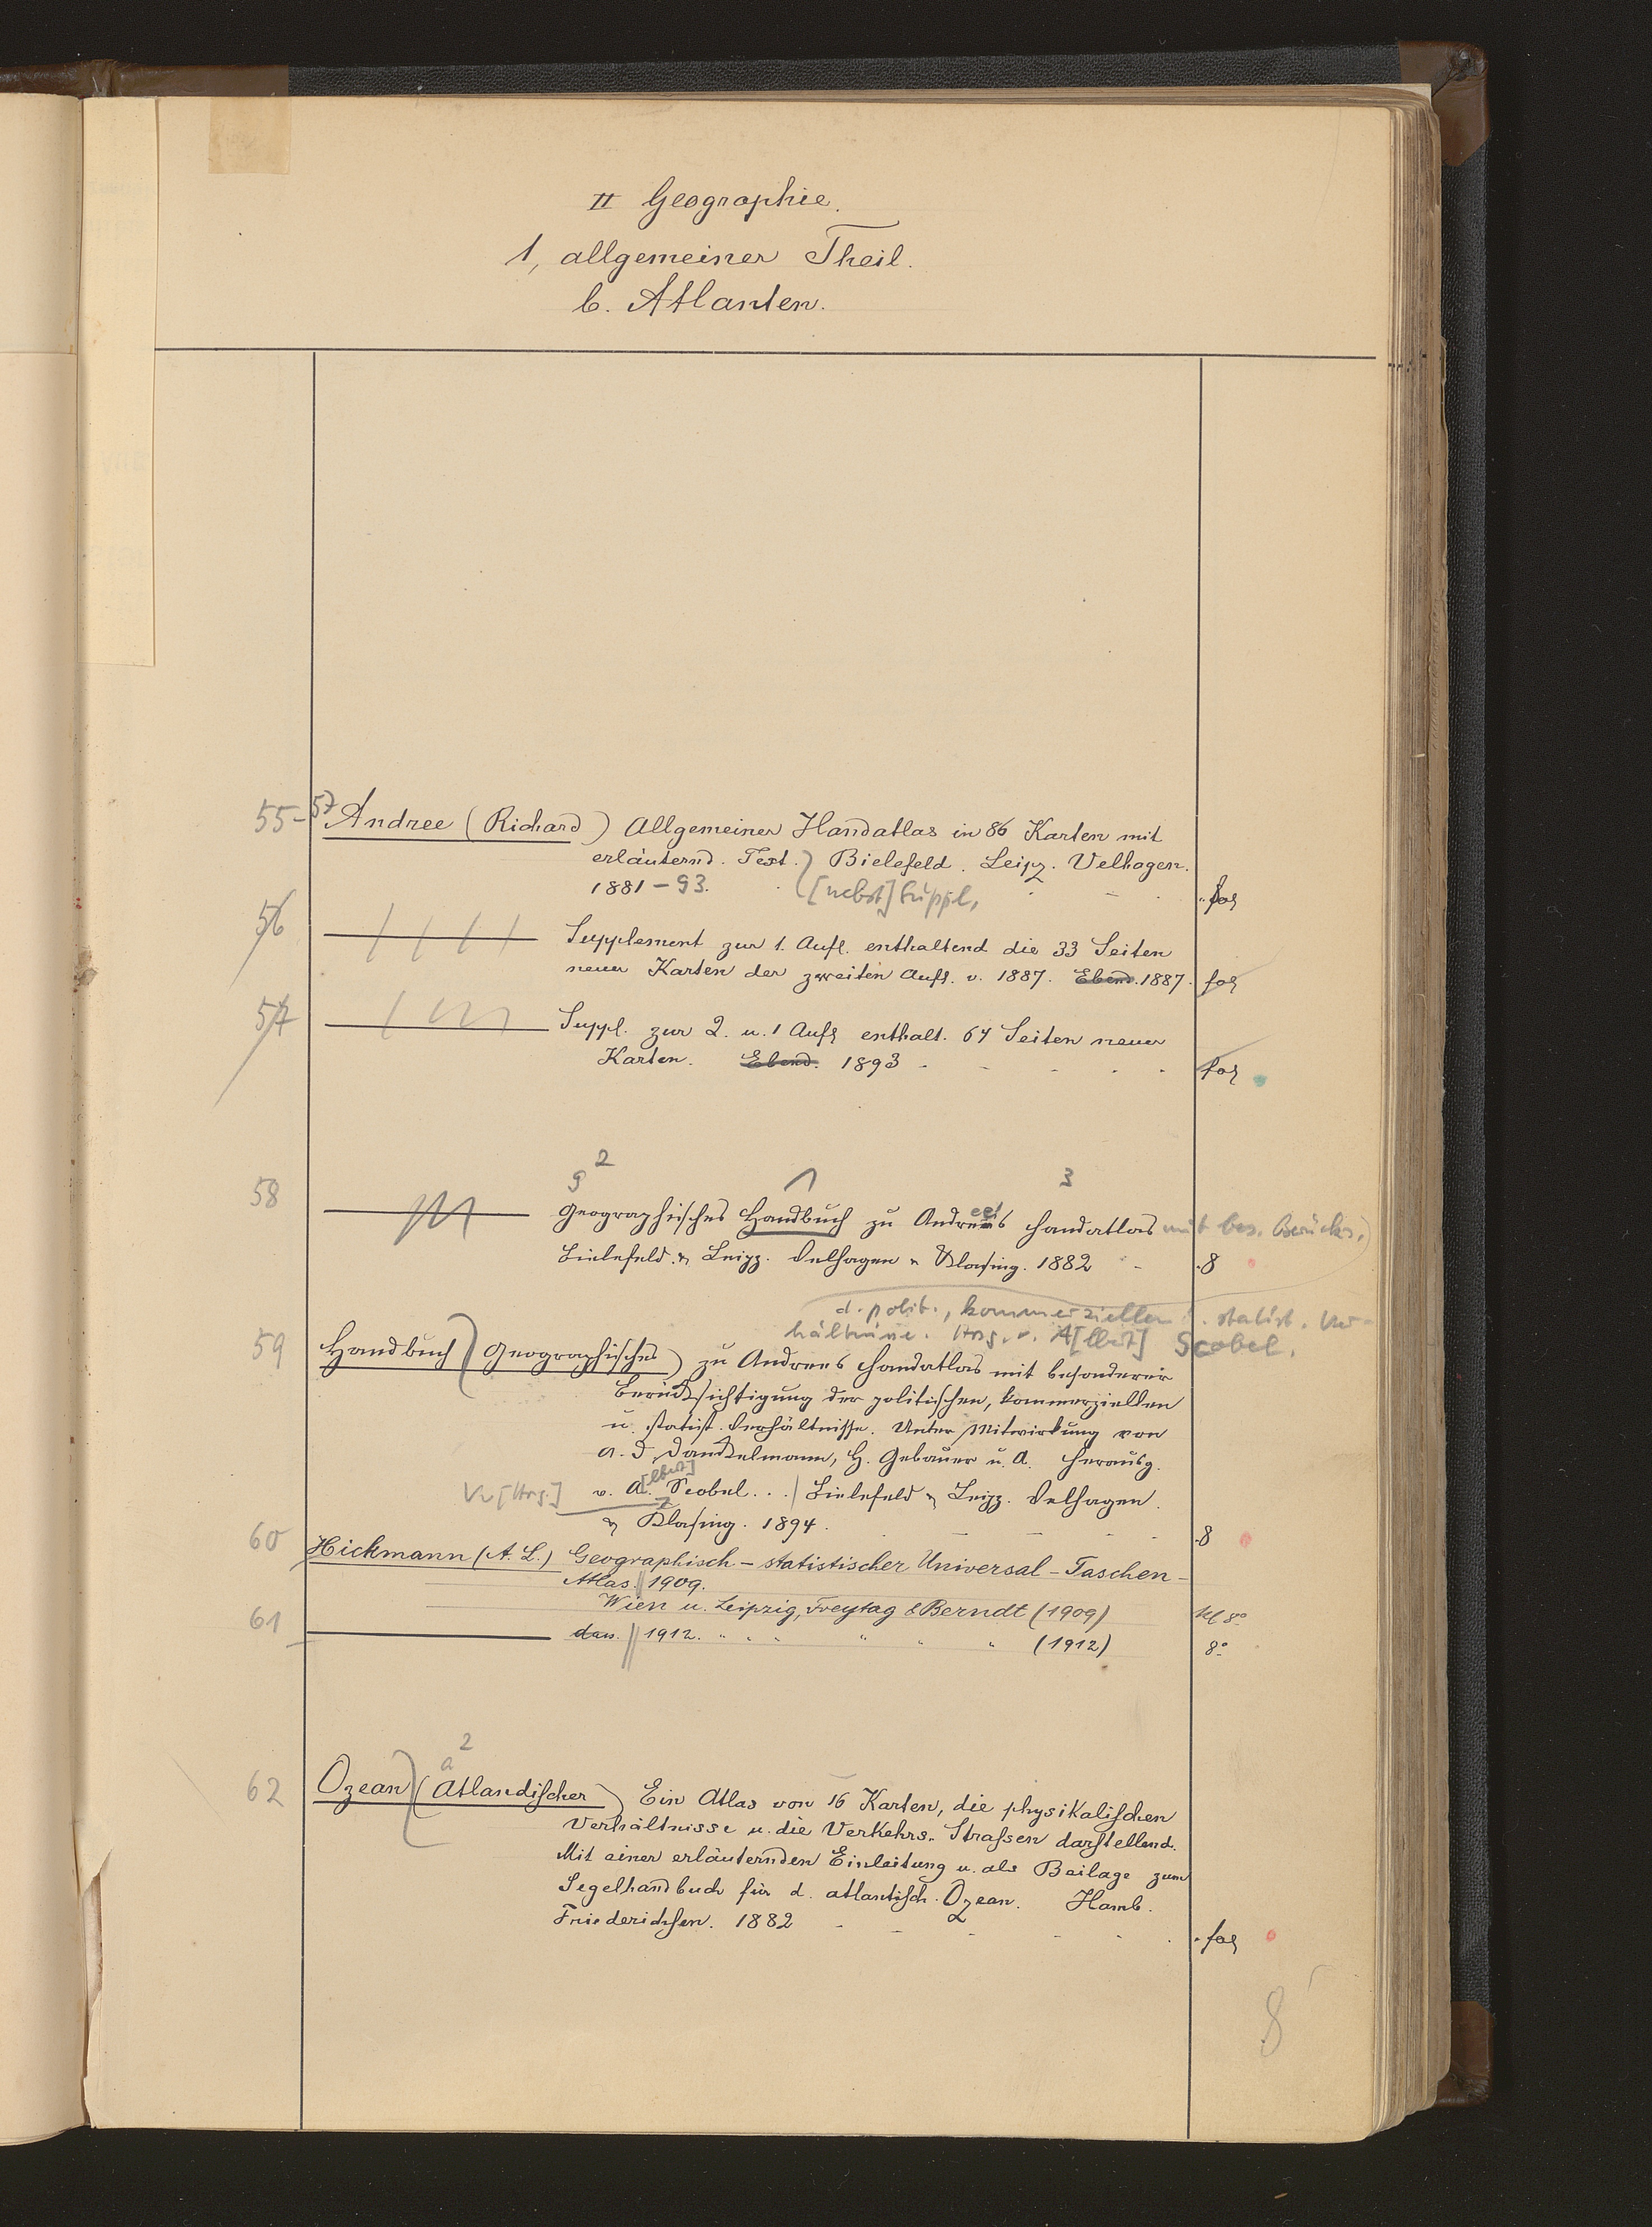 II Geographie.
1, allgemeiner Theil.
b. Atlanten.
55-57 Andree (Richard) Allgemeiner Handatlas in 86 Karten mit
erläuternd. Text.) Bielefeld. Leipz. Velhagen.
1881-93. [nebst] Suppl. fol
56 Supplement zur 1. Aufl. enthaltend die 33 Seiten
neuer Karten der zweiten Aufl. v. 1887. Ebend. 1887. fol
57 Suppl. zur 2. u. 1 Aufl enthalt. 64 Seiten neuer
Karten. Ebend. 1893 fol
g 2 1 3
58 Geographisches Handbuch zu Andrees Handatlas mit bes. Berücks.
Bielefeld & Leipz. Velhagen & Klasing. 1882 8
d. polit., kommerziellen statist. Ver-
hältnisse. Hrsg. v. A[lbert] Scobel.
59 Handbuch (Geographisches) zu Andrees Handatlas mit besonderer
Berücksichtigung der politischen, kommerziellen
u. statist. Verhältnisse. Unter Mitwirkung von
A. v. Danckelmann, H. Gebauer u. A. herausg.
[Hrsg.] v. A[lbert] Scobel. . . Bielefeld & Leipz. Velhagen.
& Klasing. 1894. 8
60 Hickmann (A. L.) Geographisch-statistischer Universal-Taschen-
Atlas. 1909.
Wien u. Leipzig, Freytag & Berndt (1909) kl 8°
61 dass. 1912. " " " " " " (1912) 8°
a 2
62 Ozean (Atlandischer) Ein Atlas von 16 Karten, die physikalischen
Verhältnisse u. die Verkehrs-Strassen darstellend.
Mit einer erläuternden Einleitung u. als Beilage zum
Segelhandbuch für d. atlantisch. Ozean. Hamb.
Friederichsen. 1882 fol
8